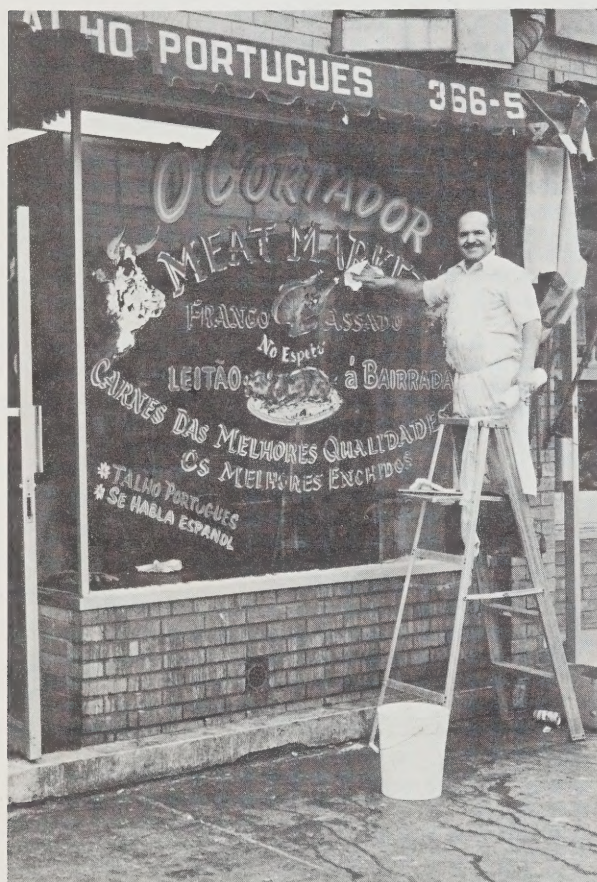 ALHO PORTUGUES 366-5
O CORTADOR
MEAT MARKET
FRANGO ASSADO
No Espeto
LEITÃO à BAIRRADA
CARNES DAS MELHORES QUALIDADES
OS MELHORES ENCHIDOS
* TALHO PORTUGUES
* SE HABLA ESPANOL